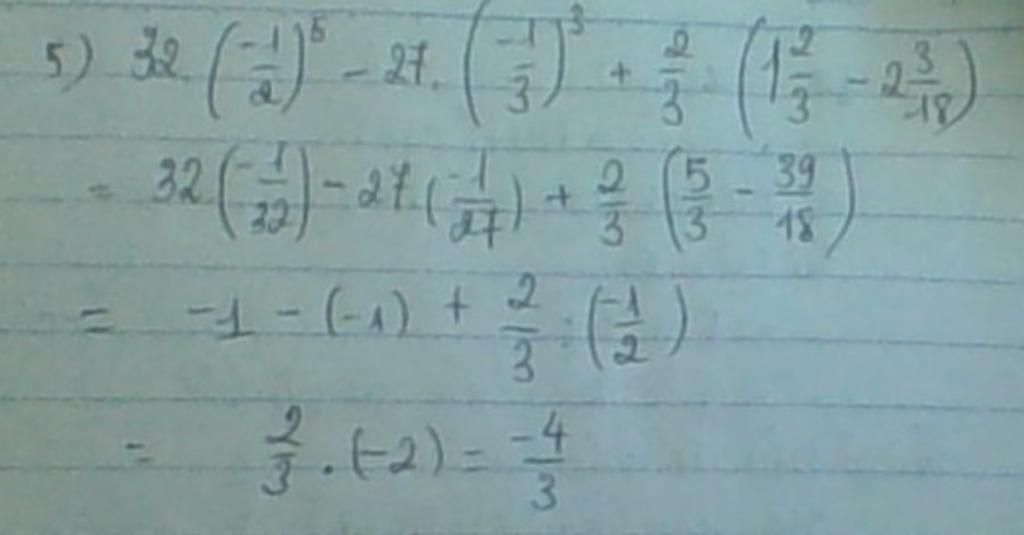 5) 32 (-1/2)^5 - 27 . (-1/3)^3 + 2/3 : (1 2/3 - 2 3/18)
= 32 (-1/32) - 27 . (-1/27) + 2/3 (5/3 - 39/18)
= -1 - (-1) + 2/3 : (-1/2)
= 2/3 . (-2) = -4/3